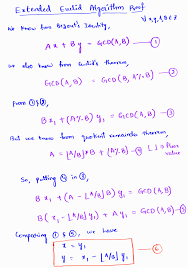 Extended Euclid Algorithm Proof
∀ x, y, A, B ∈ Z
We know from Bezout's Identity,
Ax + By = GCD(A,B) — ①
We also know from Euclid's theorem,
GCD(A,B) = GCD(B, A%B) — ②
From ① & ②,
B x₁ + (A%B) y₁ = GCD(A,B) — ③
But we know from quotient remainder theorem,
A = ⌊A/B⌋*B + (A%B) — ④ ⌊ ⌋ = Floor value
So, putting ④ in ③,
B x₁ + (A - ⌊A/B⌋ B) y₁ = GCD(A,B)
B (x₁ - ⌊A/B⌋ y₁) + A y₁ = GCD(A,B) — ⑤
Comparing ① & ⑤, we have
x = y₁
y = x₁ - ⌊A/B⌋ y₁ — ⑥